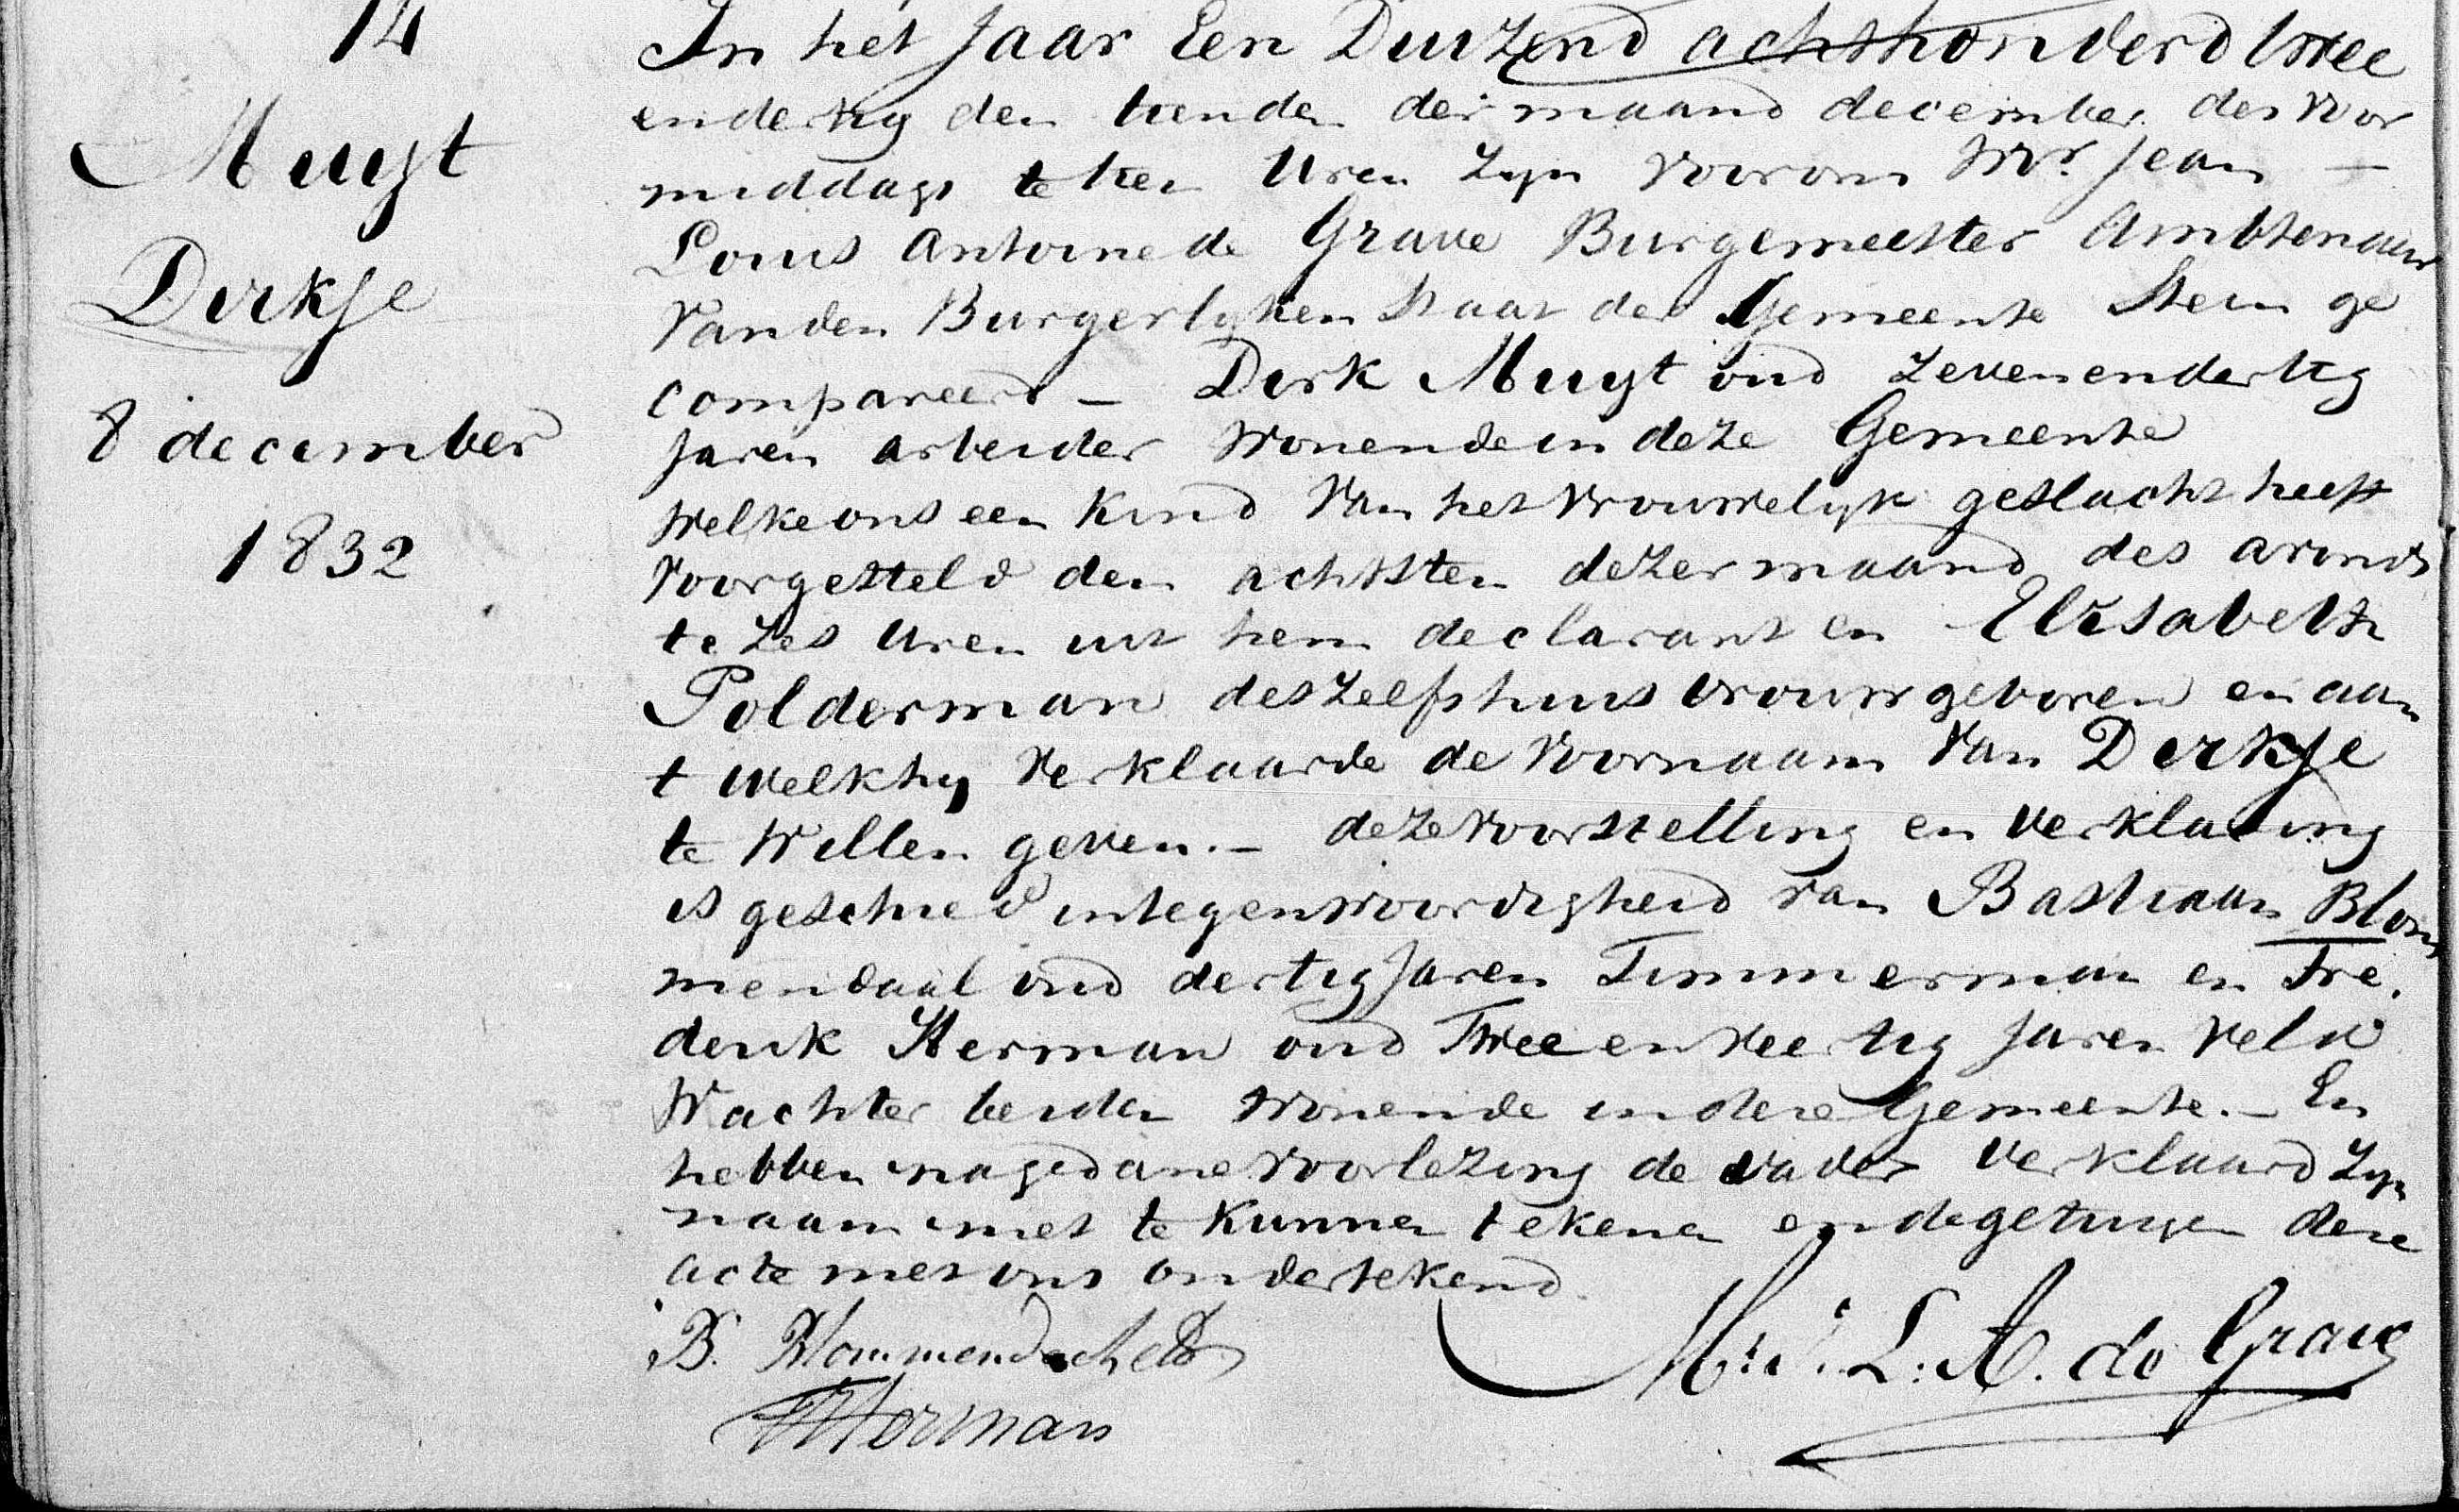 14
Muyt
Dirkje
8 december
1832
In het Jaar Een Duizend achthonderd twee
endertig den tienden der maand december des voor
middags te tien Uren Zyn Voor ons Mr. Jean —
Louis Antoine de Grave Burgemeester Ambtenaar
Van den Burgerlyken Staat der Gemeente Stein ge
compareerd — Dirk Muyt oud Zevenendertig
Jaren arbeider Wonende in deze Gemeente
Welke ons een Kind Van het Vrouwelyk geslacht heeft
Voorgesteld den achtsten dezer maand des avonds
te Zes Uren uit hem declarant en Elisabeth
Polderman deszelfs huisvrouw geboren en aan
t welk hy Verklaarde de Voornaam Van Dirkje
te Willen geven. — deze Voorstelling en Verklaring
is geschied in tegenwoordigheid van Bastiaan Blom
mendaal oud dertig Jaren Timmerman en Fre.
derik Herman oud Twee en Veertig Jaren Veld
Wachter beiden Wonende in deze Gemeente. — En
hebben na gedane Voorlezing de Vader Verklaard Zyn
naam niet te Kunnen tekenen en de getuigen deze
acte met ons ondertekend.
B. Blommenda
Herman
Mr. J. L. A. de Grave